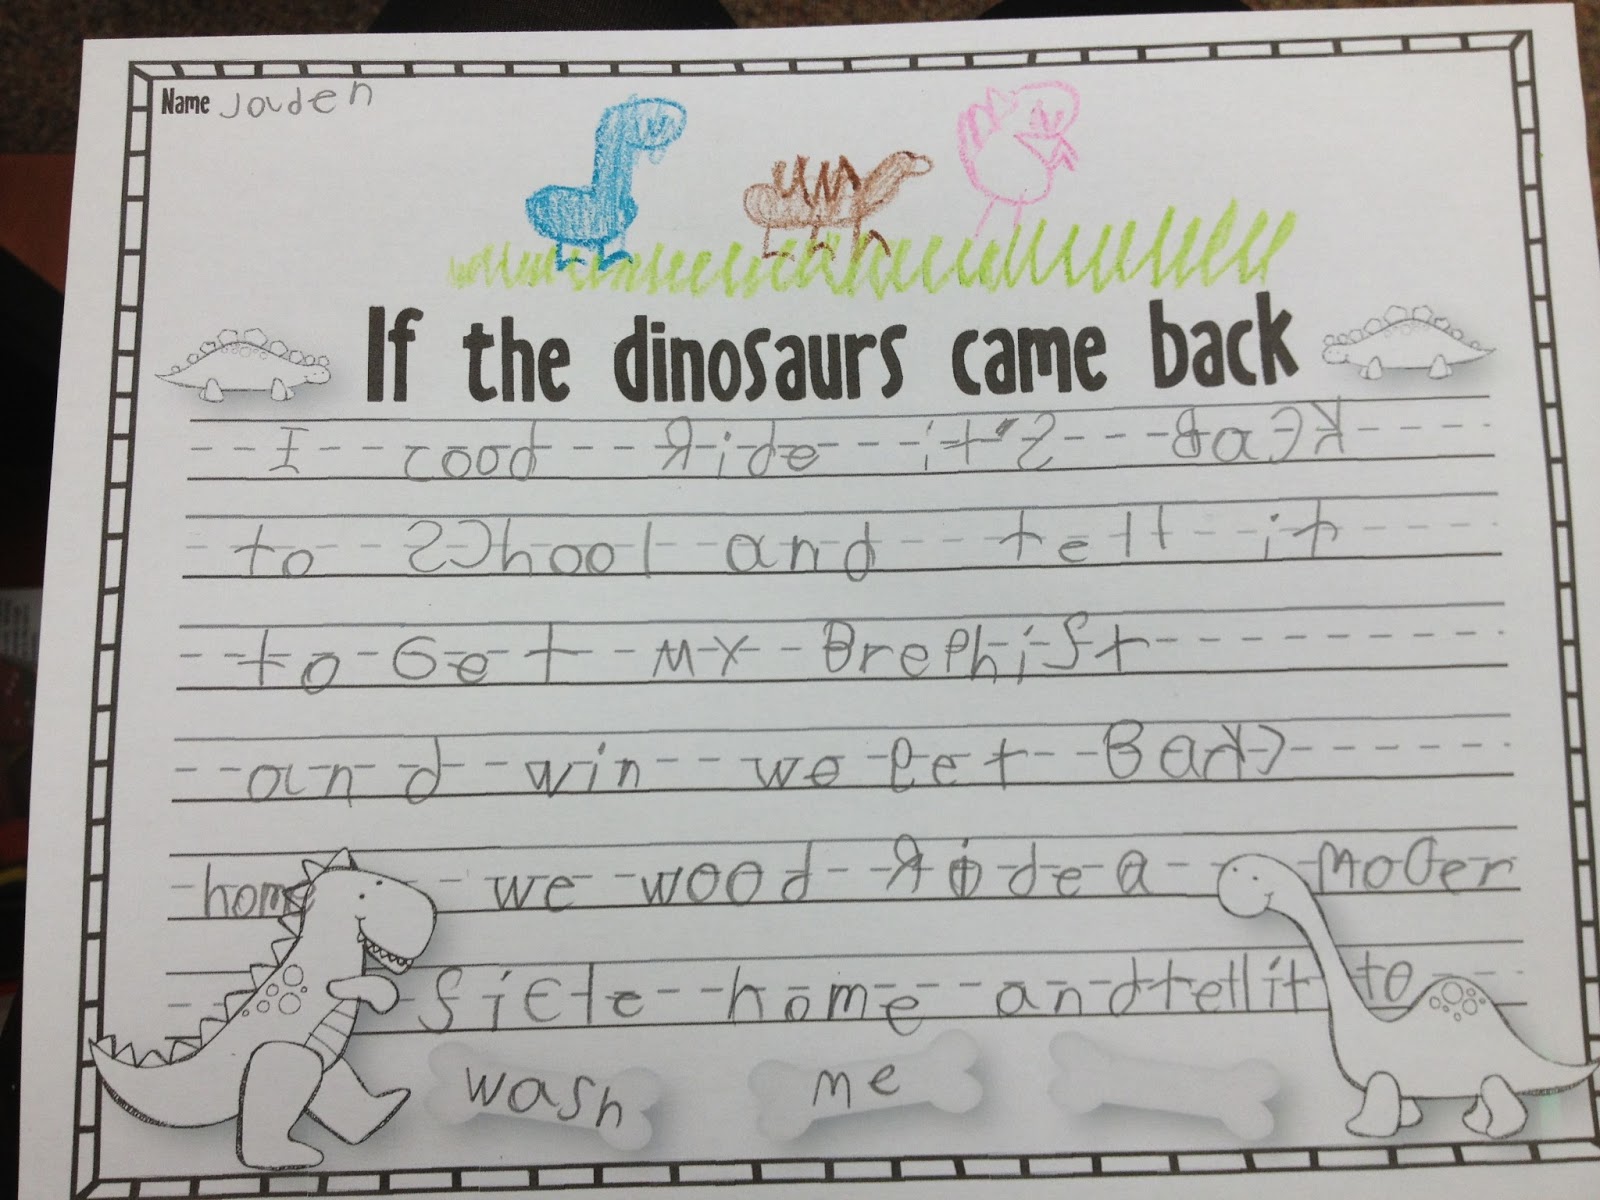 Name Jouden
If the dinosaurs came back
I cood Ride it's BacK
to SChool and tell it
to Get my Brephist
and win we Get Bakc
home we wood Ride a moder
sicle home and tell it to
wash me